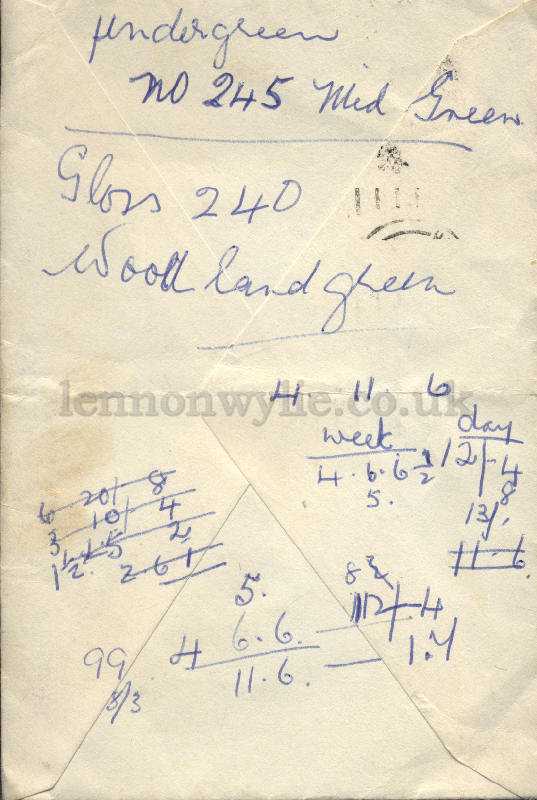 undergreen
NO 245 Mid Green
Gloss 240
Woodland green
lennonwylie.co.uk
4 11 6
week day
4 . 6 . 6 1/2 12/-4
5. 8
13/.
11.6
6 20/ 8
3 10/ 4
1 1/2 5 2
2 6 1
5.
4 6.6.
11.6.
8
1.
99
8/3